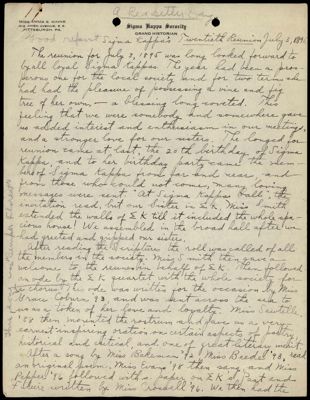 A Red Letter Day
MISS EMMA E. KINNE
Sigma Kappa Sorority
GRAND HISTORIAN
PITTSBURGH, PA.
Good report Sigma Kappa's Twentieth Reunion July 2, 1895
The reunion for July 2, 1895 was long looked forward to
by all loyal Sigma Kappas. The year had been a pros-
perous one for the local society and for two terms she
had had the pleasure of possessing a vine and fig
tree of her own, — a blessing long coveted. This
feeling that we were somebody and somewhere gave
us added interest and enthusiasm in our meetings,
and a stronger love for our sisters. The longed for
reunion came at last, the 20th birthday of Sigma
Kappa, and to her birthday party came the mem-
bers of Sigma Kappa from far and near, and
from those who could not come, many loving
messages were sent. "At Sigma Kappa Hall", the
invitation read, but our sister in ΣΚ, Miss Smith
extended the walls of ΣΚ till it included the whole spa-
cious house. We assembled in the broad hall after we
had greeted and gripped our sisters.
After reading the Scripture the roll was called of all
the members in the society. Miss Smith then gave a
welcome to the reunion in behalf of ΣΚ. Then followed
an ode by the ΣΚ quartet with the whole society for
the chorus. The ode was written for the occasion by Miss
Grace Coburn '93, and was sent across the sea to
us as a token of her love and loyalty. Miss Sawtelle
'88 then mounted the rostrum and gave us a very
earnest inspiring oration on certain aspects of poetry,
historical and critical, and one of great literary merit.
After a song by Miss Bakeman '93 Miss Beede '93, read
an original poem. Miss Evans '98 then sang, and Miss
Pepper '96 followed with a paper on ΣΚ's Past and
Future written by Miss Croswell '96. We then had the